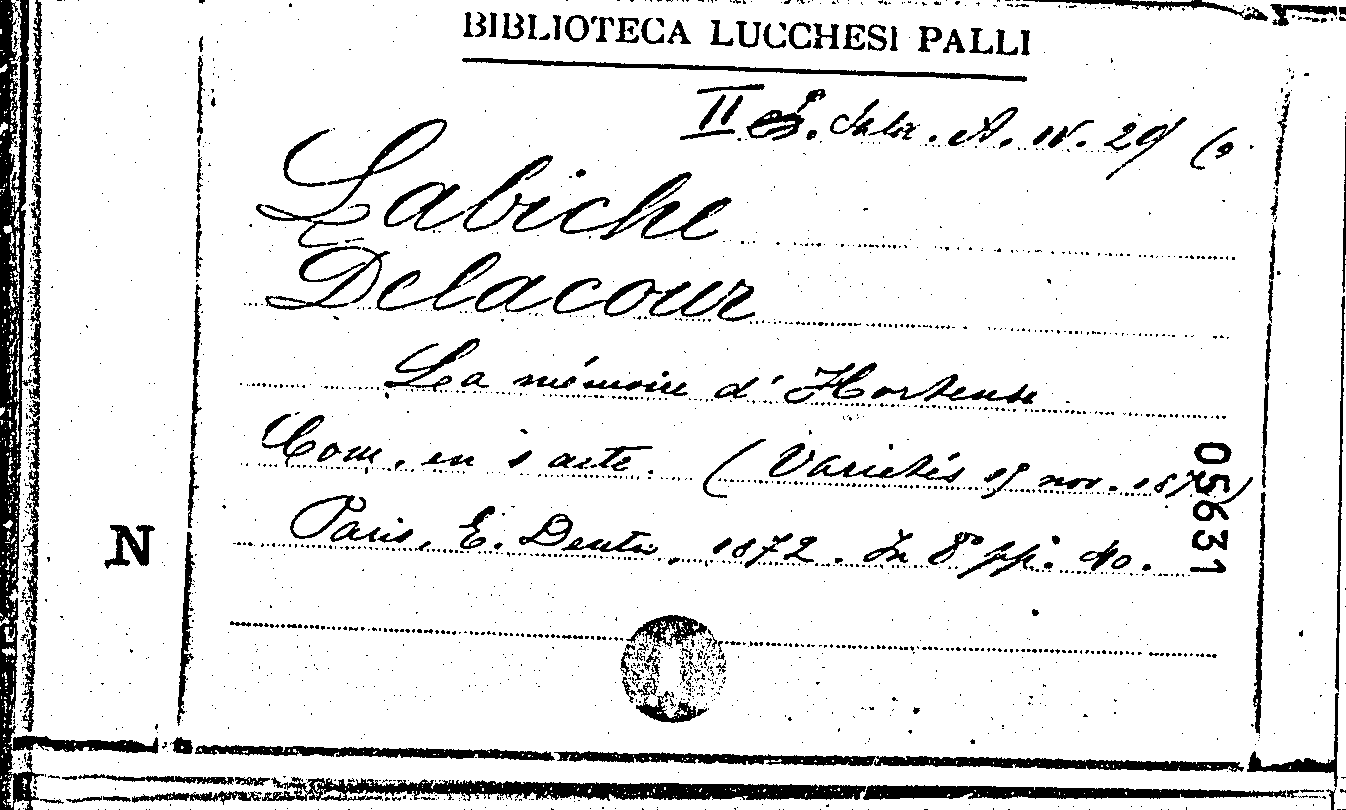 BIBLIOTECA LUCCHESI PALLI
II Sala. A. IV. 29 (
Labiche
Delacour
La mémoire d'Hortense
Com. en 1 acte. (Variétés 15 nov. 187 )
Paris, E. Dentu, 1872. In 8° pp. 40.
N
05631